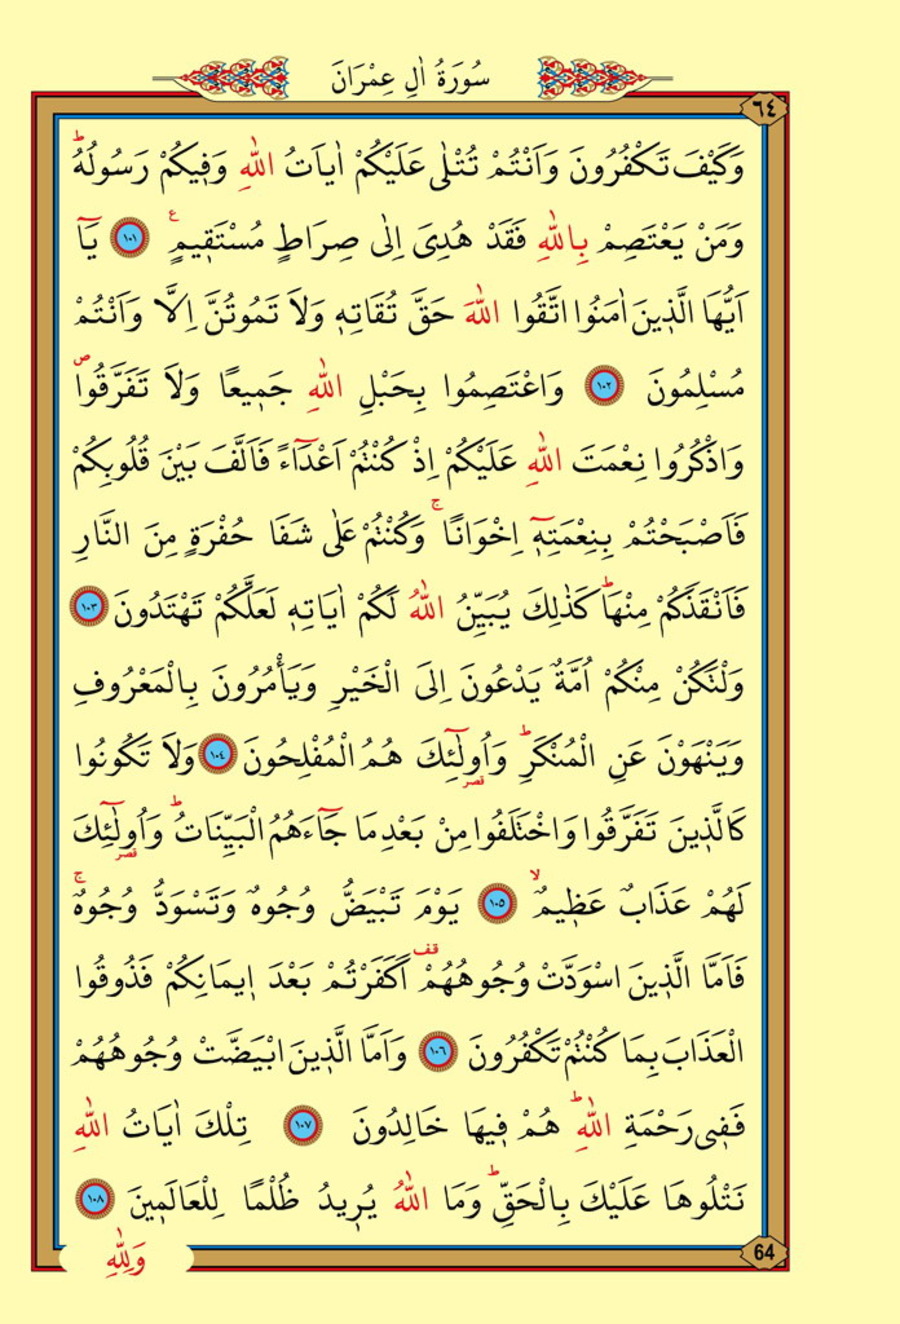 سُورَةُ اٰلِ عِمْرَانَ
٦٤
وَكَيْفَ تَكْفُرُونَ وَاَنْتُمْ تُتْلٰى عَلَيْكُمْ اٰيَاتُ اللّٰهِ وَفٖيكُمْ رَسُولُهُؕ
وَمَنْ يَعْتَصِمْ بِاللّٰهِ فَقَدْ هُدِىَ اِلٰى صِرَاطٍ مُسْتَقٖيمٍࣖ ١٠١ يَٓا
اَيُّهَا الَّذٖينَ اٰمَنُوا اتَّقُوا اللّٰهَ حَقَّ تُقَاتِهٖ وَلَا تَمُوتُنَّ اِلَّا وَاَنْتُمْ
مُسْلِمُونَ ١٠٢ وَاعْتَصِمُوا بِحَبْلِ اللّٰهِ جَمٖيعًا وَلَا تَفَرَّقُواࣕ
وَاذْكُرُوا نِعْمَتَ اللّٰهِ عَلَيْكُمْ اِذْ كُنْتُمْ اَعْدَٓاءً فَاَلَّفَ بَيْنَ قُلُوبِكُمْ
فَاَصْبَحْتُمْ بِنِعْمَتِهٖٓ اِخْوَانًاۚ وَكُنْتُمْ عَلٰى شَفَا حُفْرَةٍ مِنَ النَّارِ
فَاَنْقَذَكُمْ مِنْهَاؕ كَذٰلِكَ يُبَيِّنُ اللّٰهُ لَكُمْ اٰيَاتِهٖ لَعَلَّكُمْ تَهْتَدُونَ ١٠٣
وَلْتَكُنْ مِنْكُمْ اُمَّةٌ يَدْعُونَ اِلَى الْخَيْرِ وَيَأْمُرُونَ بِالْمَعْرُوفِ
وَيَنْهَوْنَ عَنِ الْمُنْكَرِؕ وَاُولٰٓئِكَ هُمُ الْمُفْلِحُونَ ١٠٤ وَلَا تَكُونُوا
قصر
كَالَّذٖينَ تَفَرَّقُوا وَاخْتَلَفُوا مِنْ بَعْدِ مَا جَٓاءَهُمُ الْبَيِّنَاتُؕ وَاُولٰٓئِكَ
قصر
لَهُمْ عَذَابٌ عَظٖيمٌۙ ١٠٥ يَوْمَ تَبْيَضُّ وُجُوهٌ وَتَسْوَدُّ وُجُوهٌۚ
فَاَمَّا الَّذٖينَ اسْوَدَّتْ وُجُوهُهُمْ قف اَكَفَرْتُمْ بَعْدَ اٖيمَانِكُمْ فَذُوقُوا
الْعَذَابَ بِمَا كُنْتُمْ تَكْفُرُونَ ١٠٦ وَاَمَّا الَّذٖينَ ابْيَضَّتْ وُجُوهُهُمْ
فَفٖى رَحْمَةِ اللّٰهِؕ هُمْ فٖيهَا خَالِدُونَ ١٠٧ تِلْكَ اٰيَاتُ اللّٰهِ
نَتْلُوهَا عَلَيْكَ بِالْحَقِّؕ وَمَا اللّٰهُ يُرٖيدُ ظُلْمًا لِلْعَالَمٖينَ ١٠٨
64
وَلِلّٰهِ